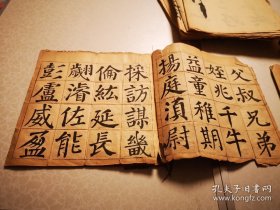 父叔兄弟
姪兆千牛
益童稚期
揚庭湏尉
採訪謀畿
倫紘延長
翽濬佐能
彭盧威盈
孔夫子旧书网